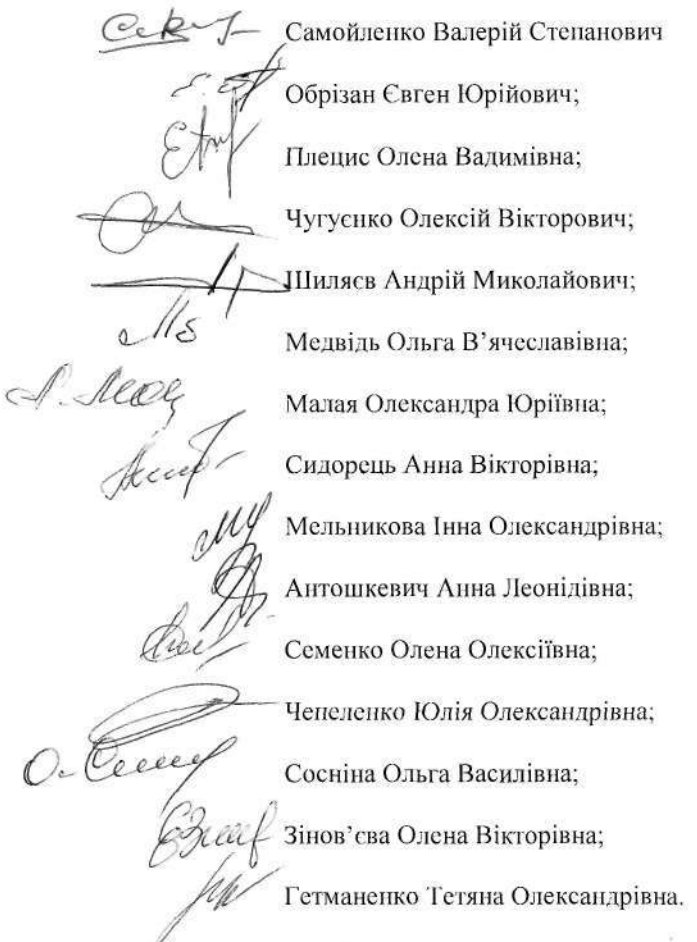 Самойленко Валерій Степанович
Обрізан Євген Юрійович;
Плецис Олена Вадимівна;
Чугуєнко Олексій Вікторович;
Шиляєв Андрій Миколайович;
Медвідь Ольга В’ячеславівна;
Малая Олександра Юріївна;
Сидорець Анна Вікторівна;
Мельникова Інна Олександрівна;
Антошкевич Анна Леонідівна;
Семенко Олена Олексіївна;
Чепеленко Юлія Олександрівна;
Сосніна Ольга Василівна;
Зінов’єва Олена Вікторівна;
Гетманенко Тетяна Олександрівна.